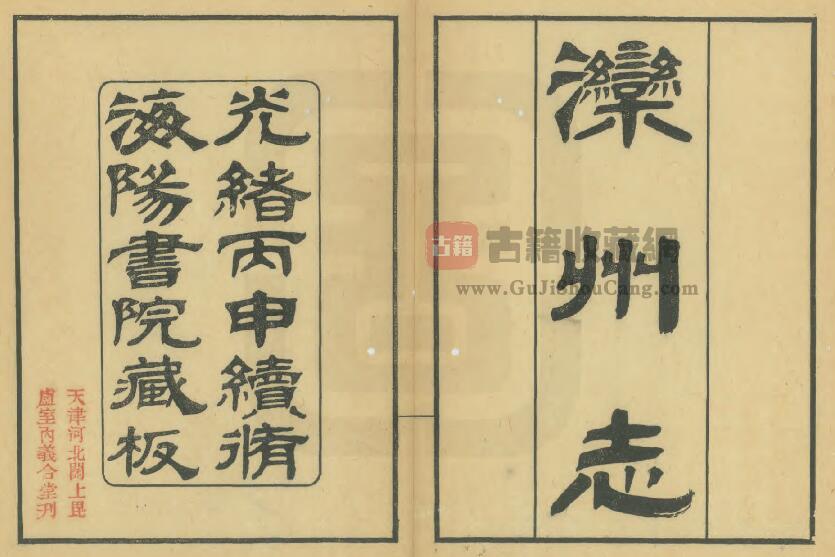 灤州志
古籍
古籍收藏網
www.GuJiShouCang.com
光緒丙申續脩
海陽書院藏板
天津河北關上毘
盧室內義合堂刋